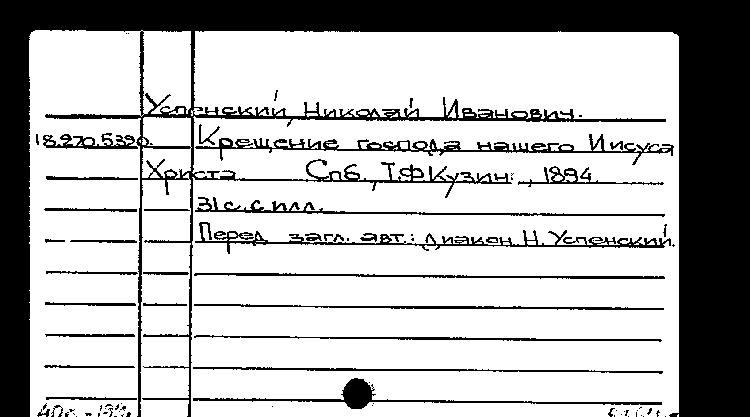 Успенский, Николай Иванович.
18.270.5.390. Крещение господа нашего Иисуса
Христа. Спб., Т.Ф Кузин., 1894.
31 с. с илл.
Перед загл. авт.: диакон Н. Успенский.